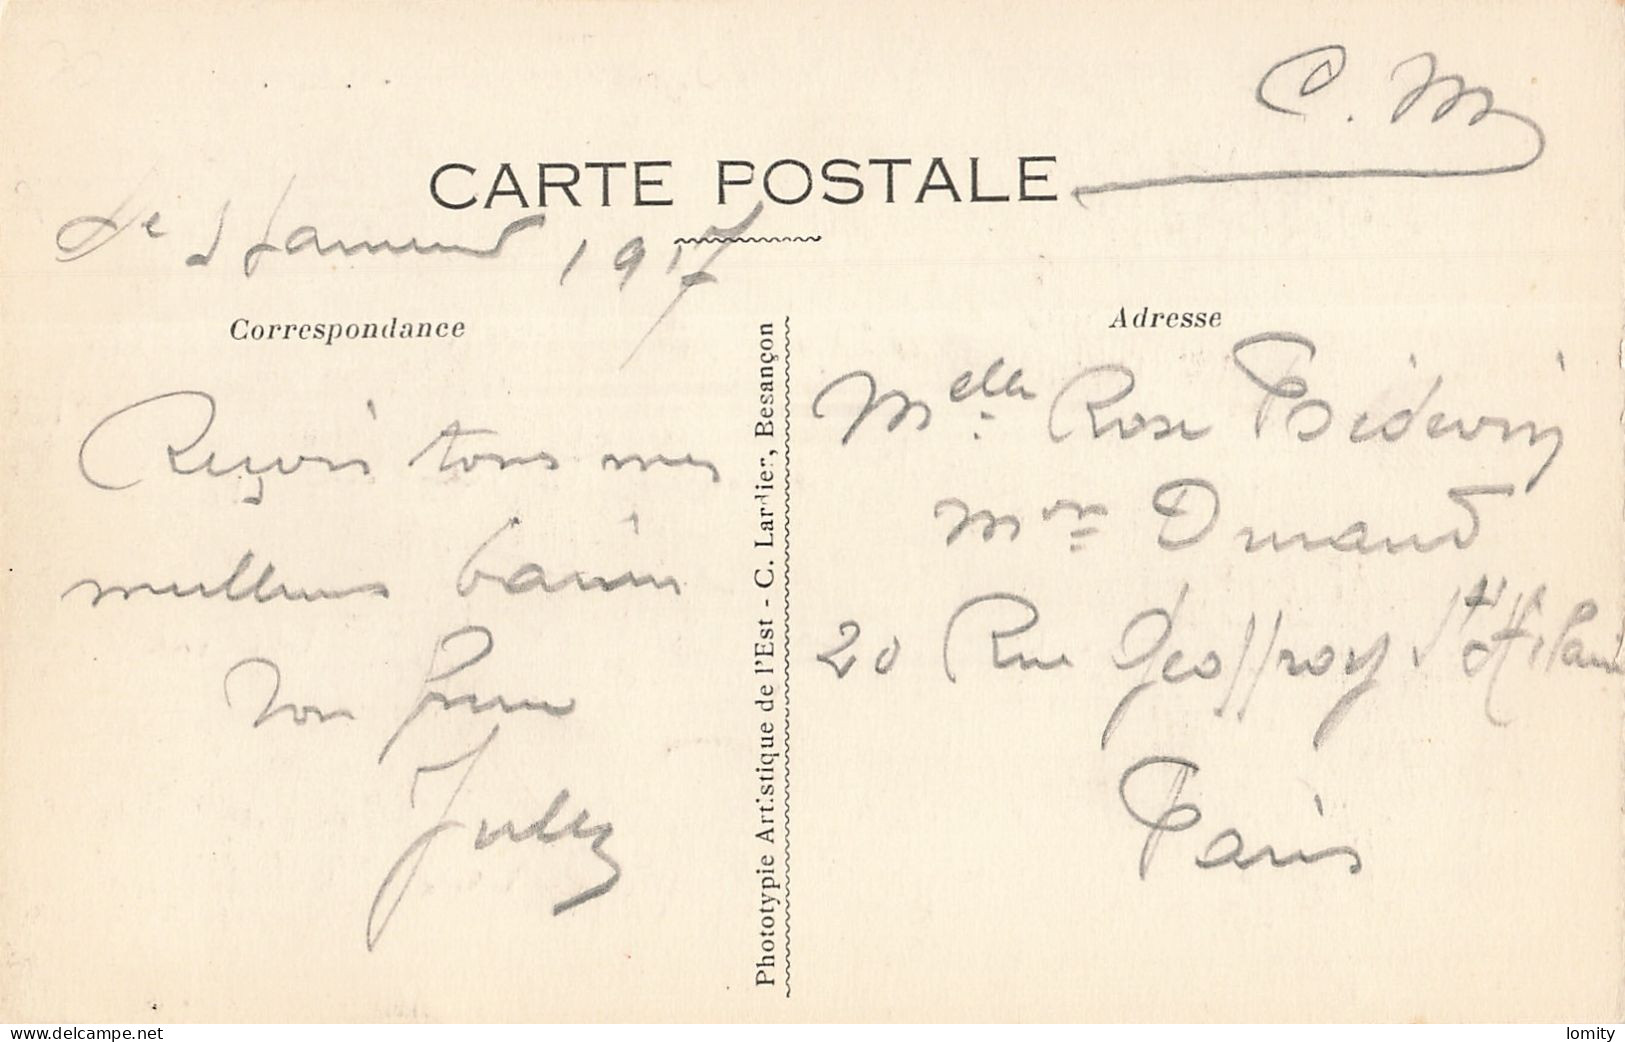 C. M
CARTE POSTALE
Le Janvier 1917
Correspondance
Adresse
Reçois tous mes
meilleurs baisers
Ton frere
Jules
Phototypie Artistique de l'Est - C. Lardier, Besançon
Melle Rose
Mon Durand
20 Rue Geoffroy St Hilaire
Paris
www.delcampe.net
lomity